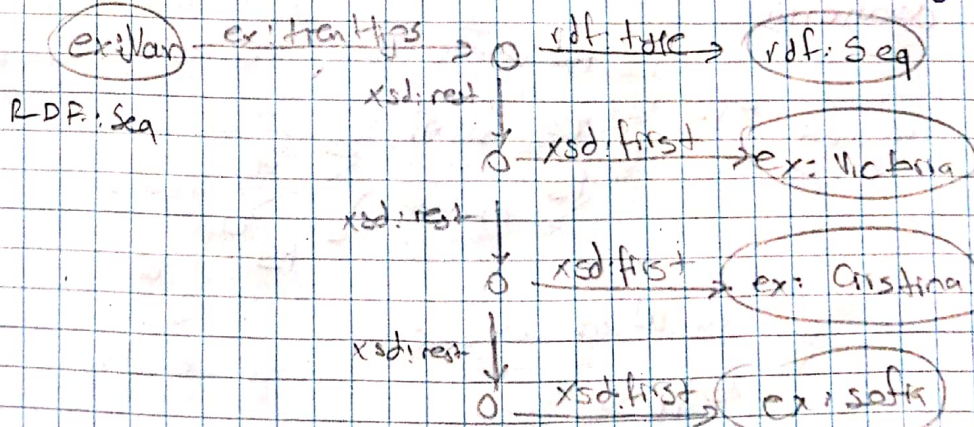 ex:Ivan ex:tienHijos rdf:type rdf:Seq
xsd:rest
RDF:Seq
xsd:first ex:Victoria
xsd:rest
xsd:first ex:Cristina
xsd:rest
xsd:first ex:Sofia